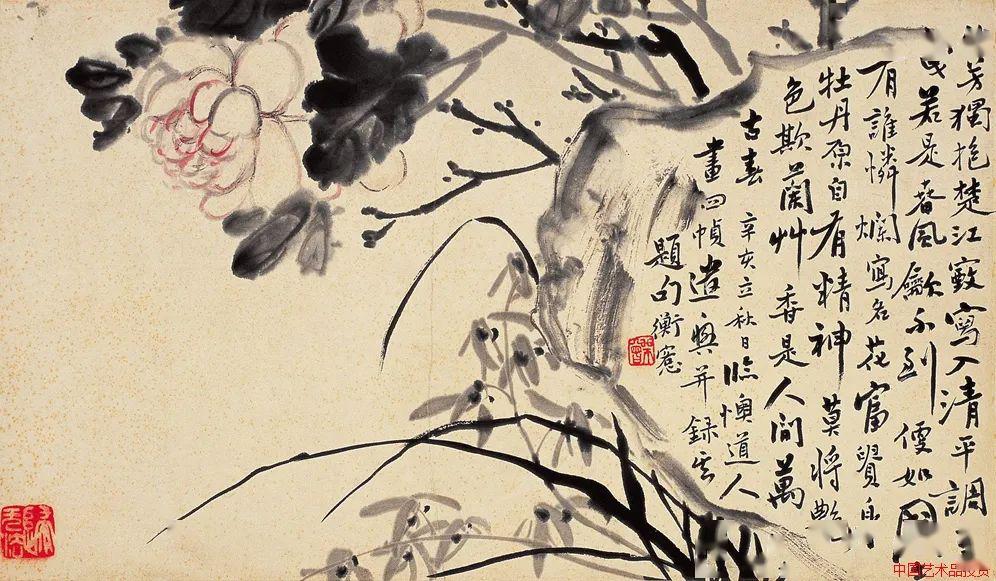 芳獨抱楚江寫入清平調
若是春風不到便如
有誰憐爛寫名花富貴身
牡丹原自有精神莫將艷
色欺蘭艸香是人間萬
古春 辛亥立秋日臨懊道人
畫四幀遣興并録其
題句衡窓
中国艺术品投资